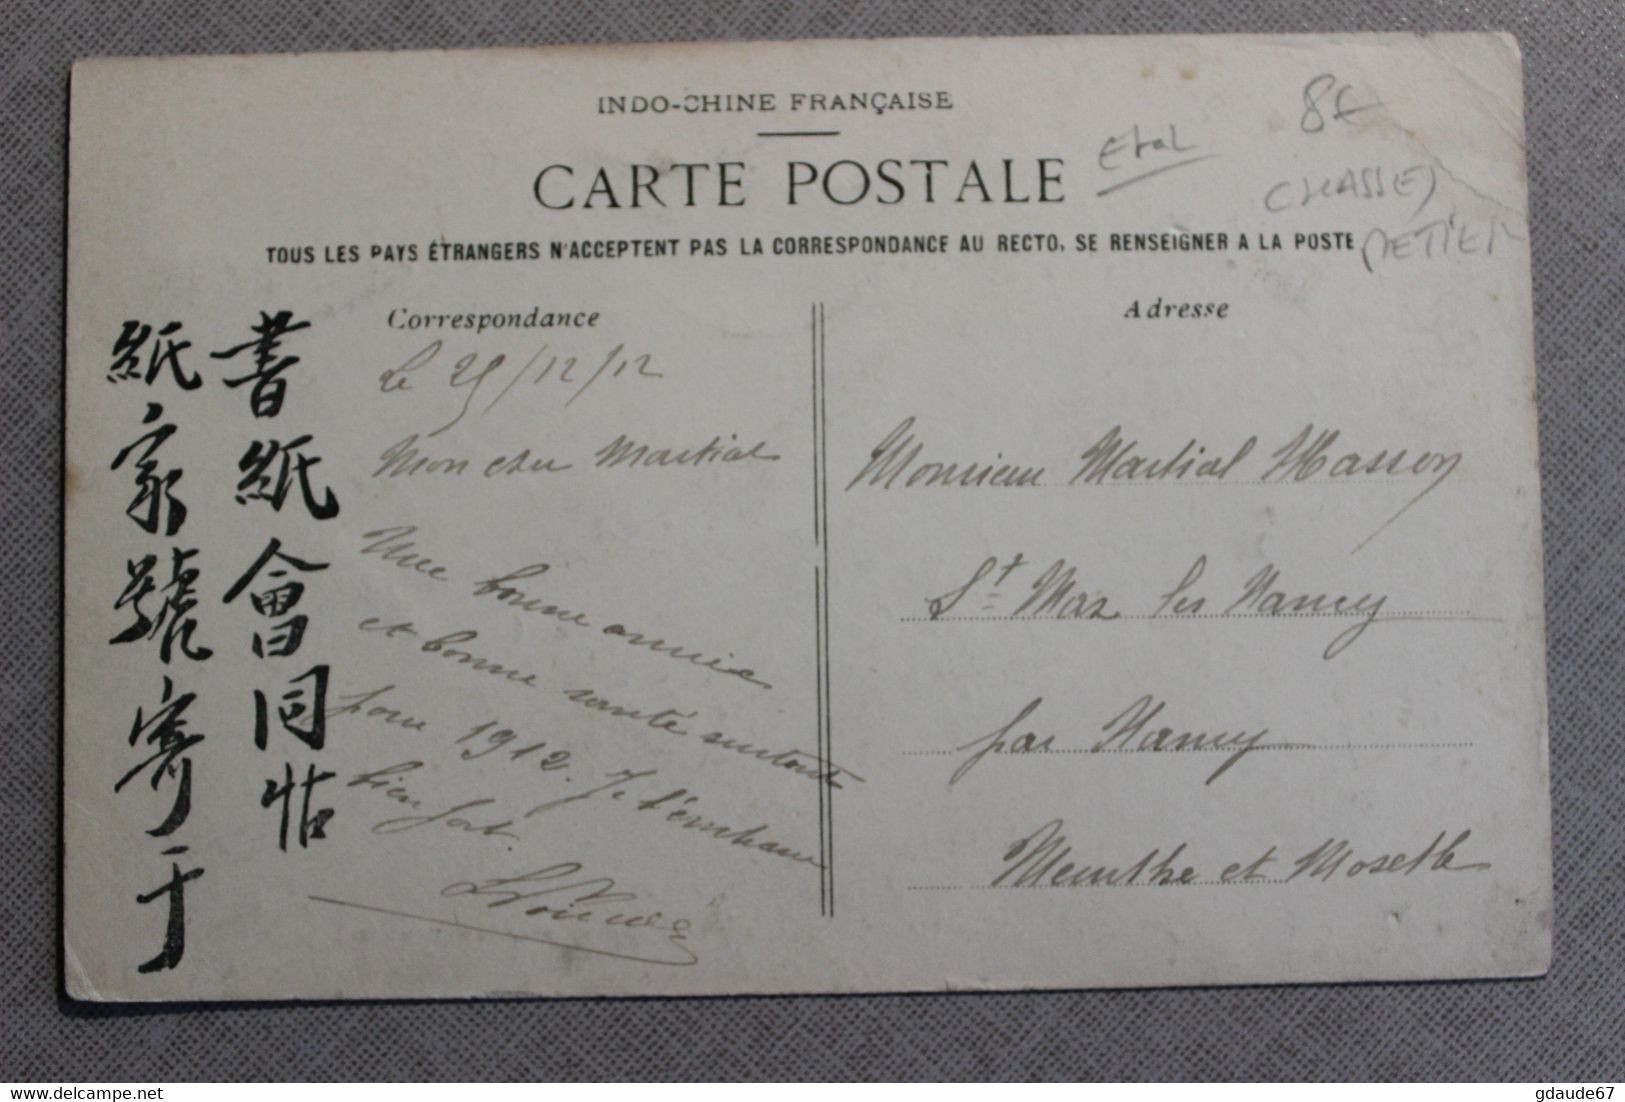 INDO-CHINE FRANÇAISE
CARTE POSTALE
Etal
8€
CHASSE)
METIER
TOUS LES PAYS ÉTRANGERS N'ACCEPTENT PAS LA CORRESPONDANCE AU RECTO, SE RENSEIGNER A LA POSTE
書紙會同帖
紙家號寄于
Correspondance
Le 25/12/12
Mon cher Martial
Une bonne année
et bonne santé surtout
pour 1912. Je t'embrasse
bien fort.
Adresse
Monsieur Martial Masson
St Max les Nancy
par Nancy
Meurthe et Moselle
gdaude67